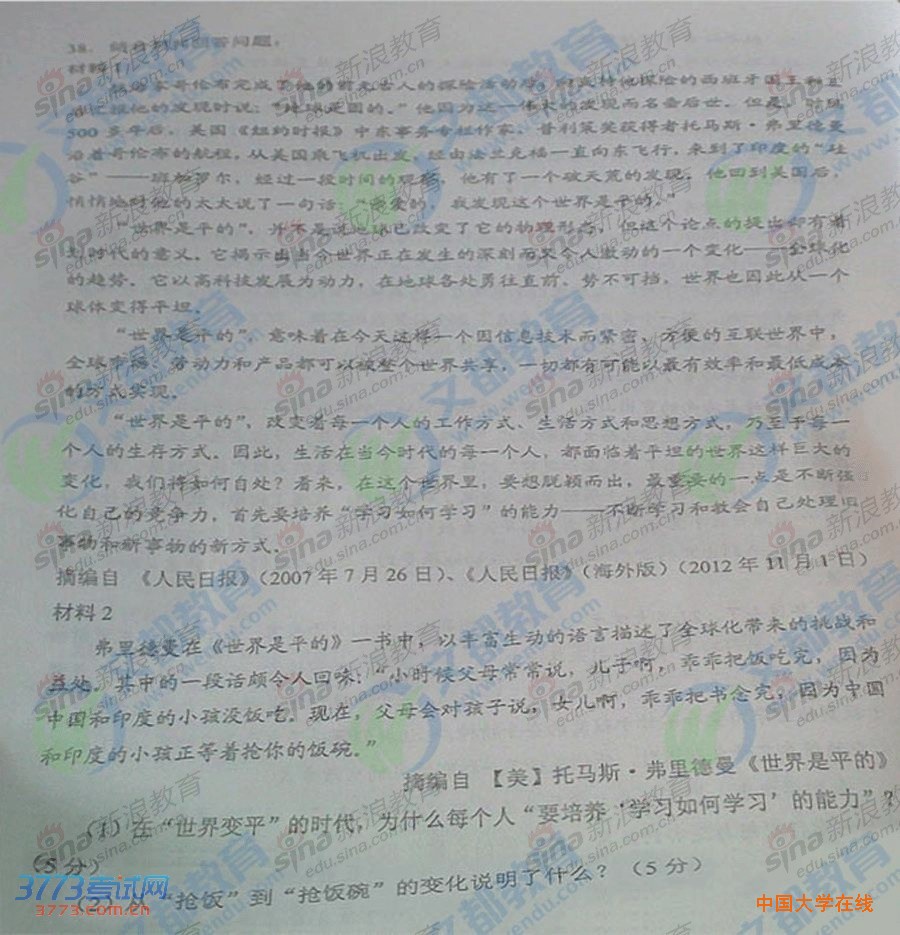 38. 结合材料回答问题：
材料 1
航海家哥伦布完成了他的前无古人的探险活动后，向支持他探险的西班牙国王和王
后汇报他的发现时说：“地球是圆的。”他因为这一伟大的发现而名垂后世。但是，时隔
500 多年后，美国《纽约时报》中东事务专栏作家、普利策奖获得者托马斯·弗里德曼
沿着哥伦布的航程，从美国乘飞机出发，经由法兰克福一直向东飞行，来到了印度的“硅
谷”——班加罗尔，经过一段时间的观察，他有了一个破天荒的发现。他回到美国后，
悄悄地对他的太太说了一句话：“亲爱的，我发现这个世界是平的。”
“世界是平的”，并不是说地球已改变了它的物理形态，但这个论点的提出却有着
划时代的意义。它揭示出当今世界正在发生的深刻而又令人激动的一个变化——全球化
的趋势。它以高科技发展为动力，在地球各处勇往直前、势不可挡，世界也因此从一个
球体变得平坦。
“世界是平的”，意味着在今天这样一个因信息技术而紧密、方便的互联世界中，
全球市场、劳动力和产品都可以被整个世界共享，一切都有可能以最有效率和最低成本
的方式实现。
“世界是平的”，改变着每一个人的工作方式、生活方式和思想方式，乃至于每一
个人的生存方式。因此，生活在当今时代的每一个人，都面临着平坦的世界这样巨大的
变化，我们将如何自处？看来，在这个世界里，要想脱颖而出，最重要的一点是不断强
化自己的竞争力，首先要培养“学习如何学习”的能力——不断学习和教会自己处理旧
事物和新事物的新方式。
摘编自 《人民日报》（2007 年 7 月 26 日）、《人民日报》（海外版）（2012 年 11 月 1 日）
材料 2
弗里德曼在《世界是平的》一书中，以丰富生动的语言描述了全球化带来的挑战和
益处。其中的一段话颇令人回味：“小时候父母常常说，儿子啊，乖乖把饭吃完，因为
中国和印度的小孩没饭吃。现在，父母会对孩子说，女儿啊，乖乖把书念完，因为中国
和印度的小孩正等着抢你的饭碗。”
摘编自 【美】托马斯·弗里德曼《世界是平的》
（1）在“世界变平”的时代，为什么每个人“要培养‘学习如何学习’的能力”？
（5 分）
（2）从“抢饭”到“抢饭碗”的变化说明了什么？（5 分）
3773考试网
3773.com.cn
中国大学在线
sina 新浪教育
edu.sina.com.cn
文都教育
www.wendu.com